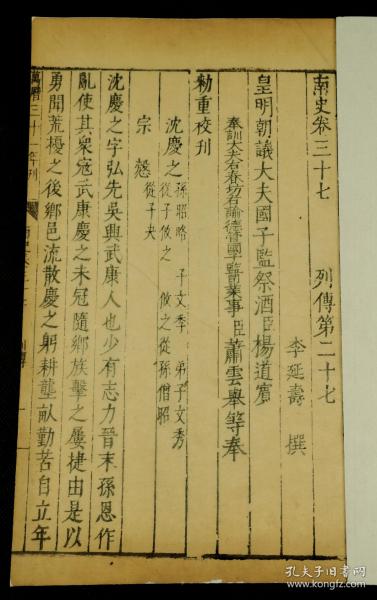 南史卷三十七　列傳第二十七
李延壽　撰
皇明朝議大夫國子監祭酒臣楊道賓
奉訓大夫右春坊右諭德管國子監司業事臣蕭雲舉等奉
勑重校刋
沈慶之孫昭略　子文季　弟子文秀
從子攸之　攸之從孫僧昭
宗慤從子夬
沈慶之字弘先吳興武康人也少有志力晉末孫恩作
亂使其衆寇武康慶之未冠隨鄉族擊之屢捷由是以
勇聞荒擾之後鄉邑流散慶之躬耕壟畝勤苦自立年
萬曆三十一年刋
孔夫子旧书网
kongfz.com